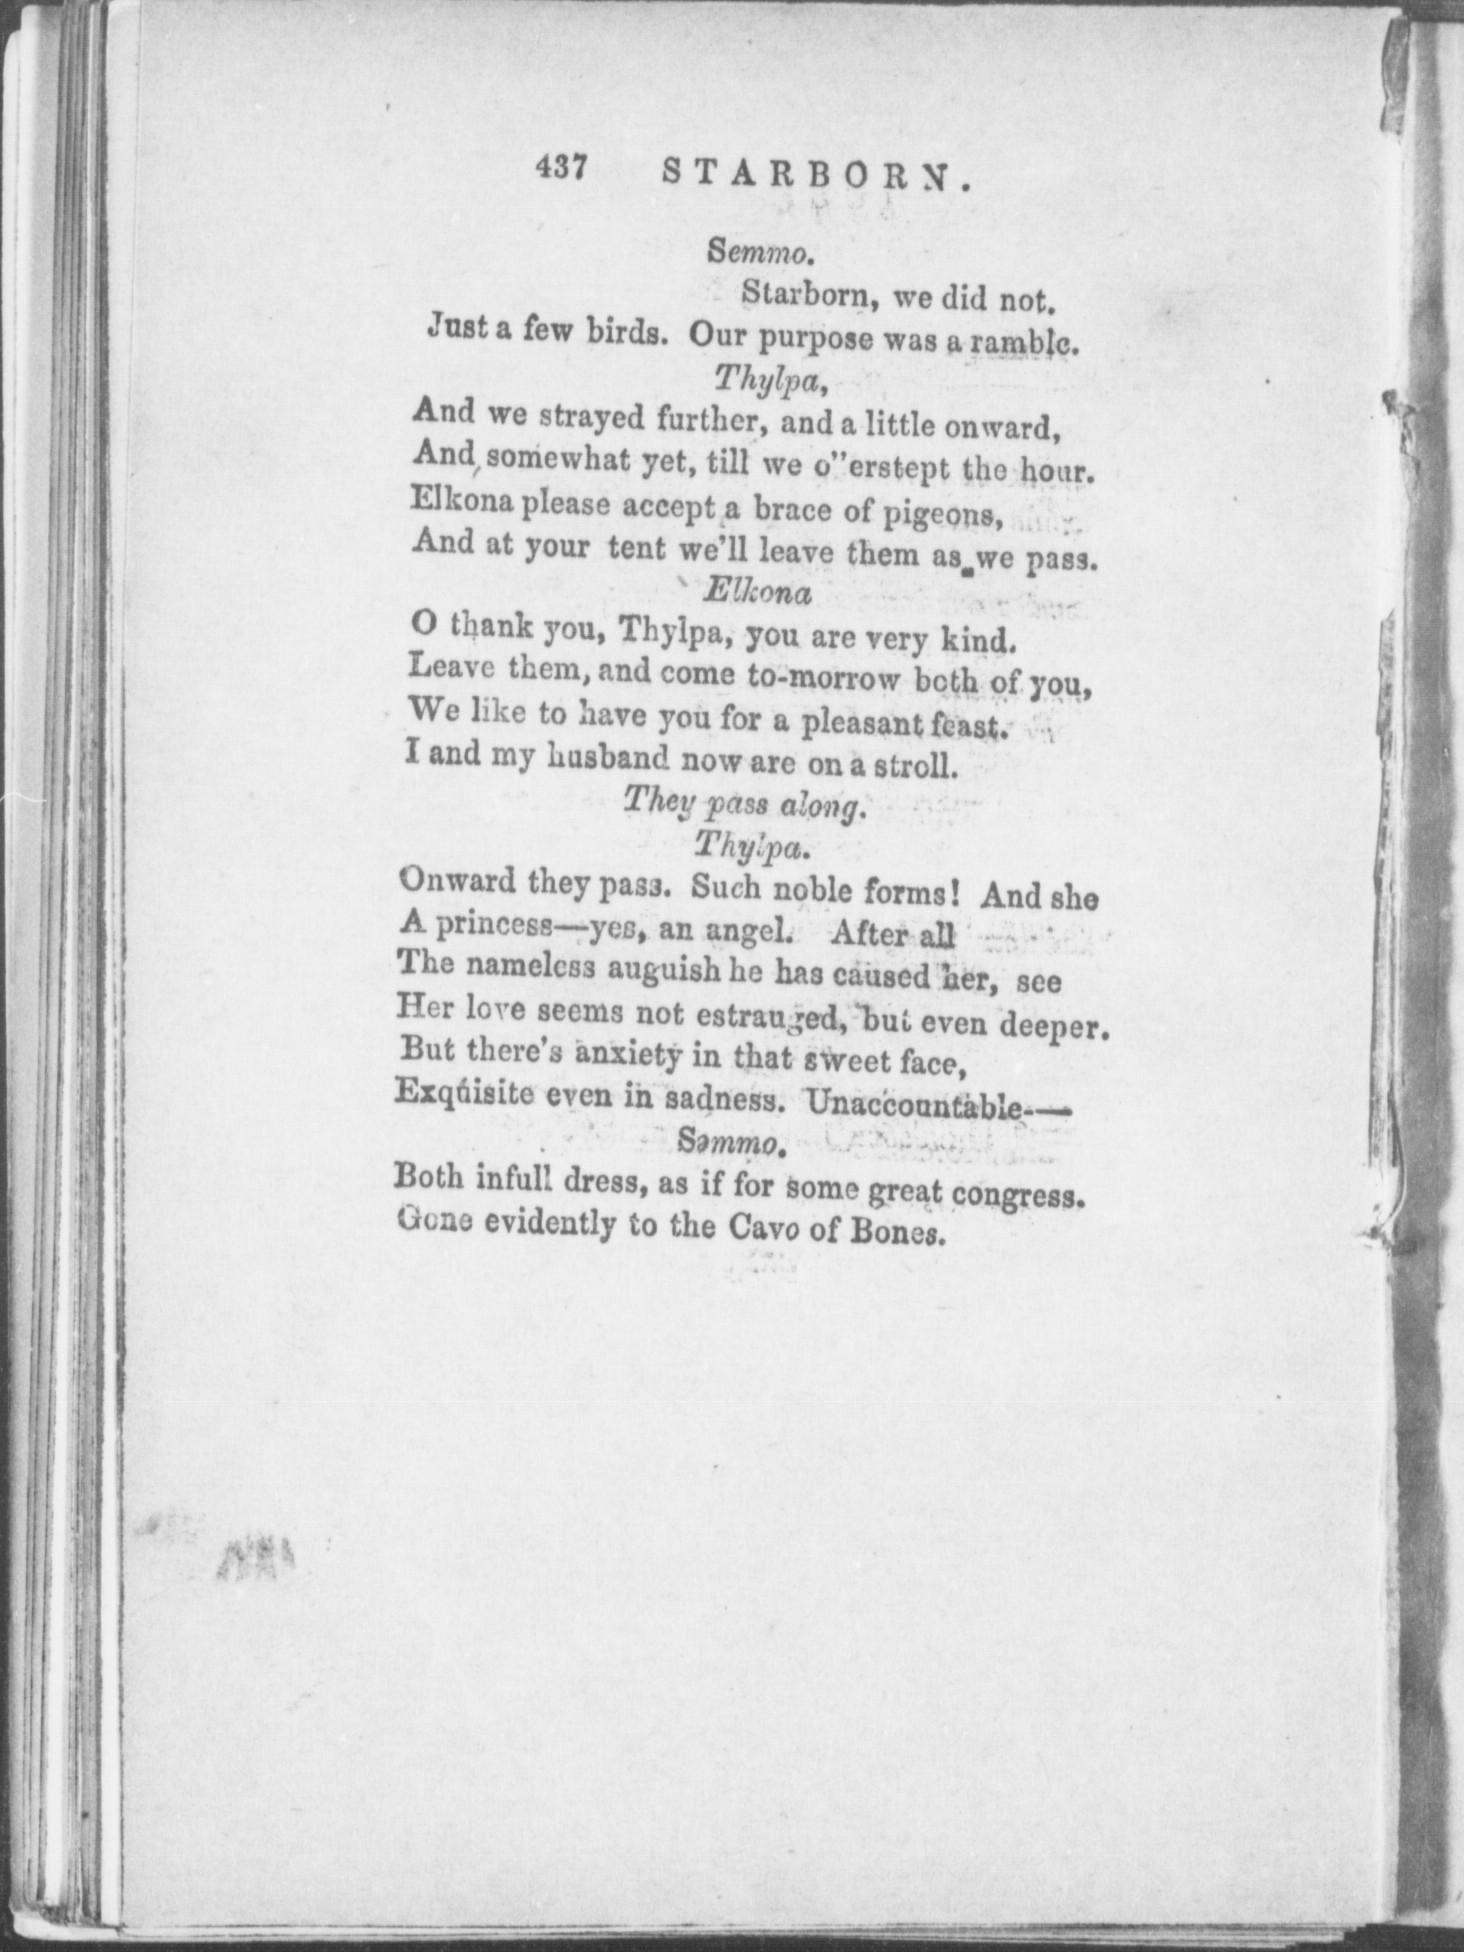 437 STARBORN.
Semmo.
Starborn, we did not.
Just a few birds. Our purpose was a ramble.
Thylpa,
And we strayed further, and a little onward,
And somewhat yet, till we o"erstept the hour.
Elkona please accept a brace of pigeons,
And at your tent we'll leave them as we pass.
Elkona
O thank you, Thylpa, you are very kind.
Leave them, and come to-morrow both of you,
We like to have you for a pleasant feast.
I and my husband now are on a stroll.
They pass along.
Thylpa.
Onward they pass. Such noble forms! And she
A princess—yes, an angel. After all
The nameless auguish he has caused her, see
Her love seems not estrauged, but even deeper.
But there's anxiety in that sweet face,
Exquisite even in sadness. Unaccountable-—
Semmo.
Both infull dress, as if for some great congress.
Gone evidently to the Cavo of Bones.